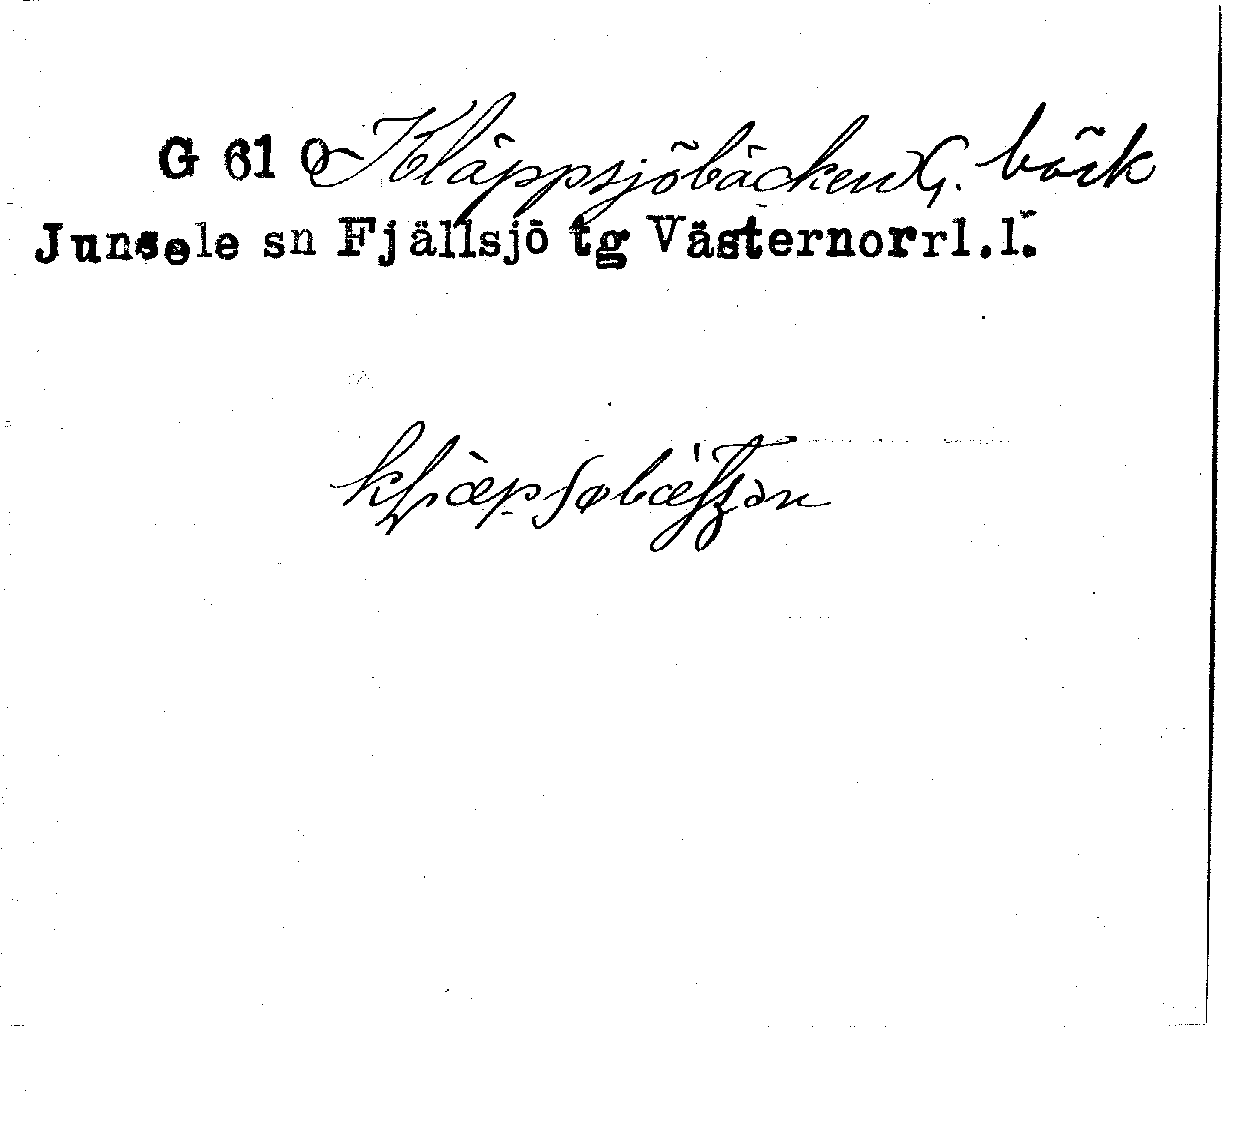 G 61 Q Kläppsjöbäcken G. bäck
Junsele sn Fjällsjö tg Västernorrl.l.